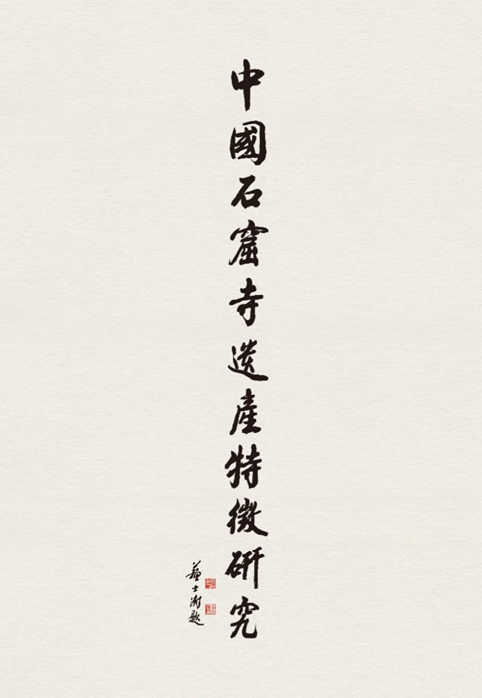 中國石窟寺遺產特徵研究
蘇士澍題